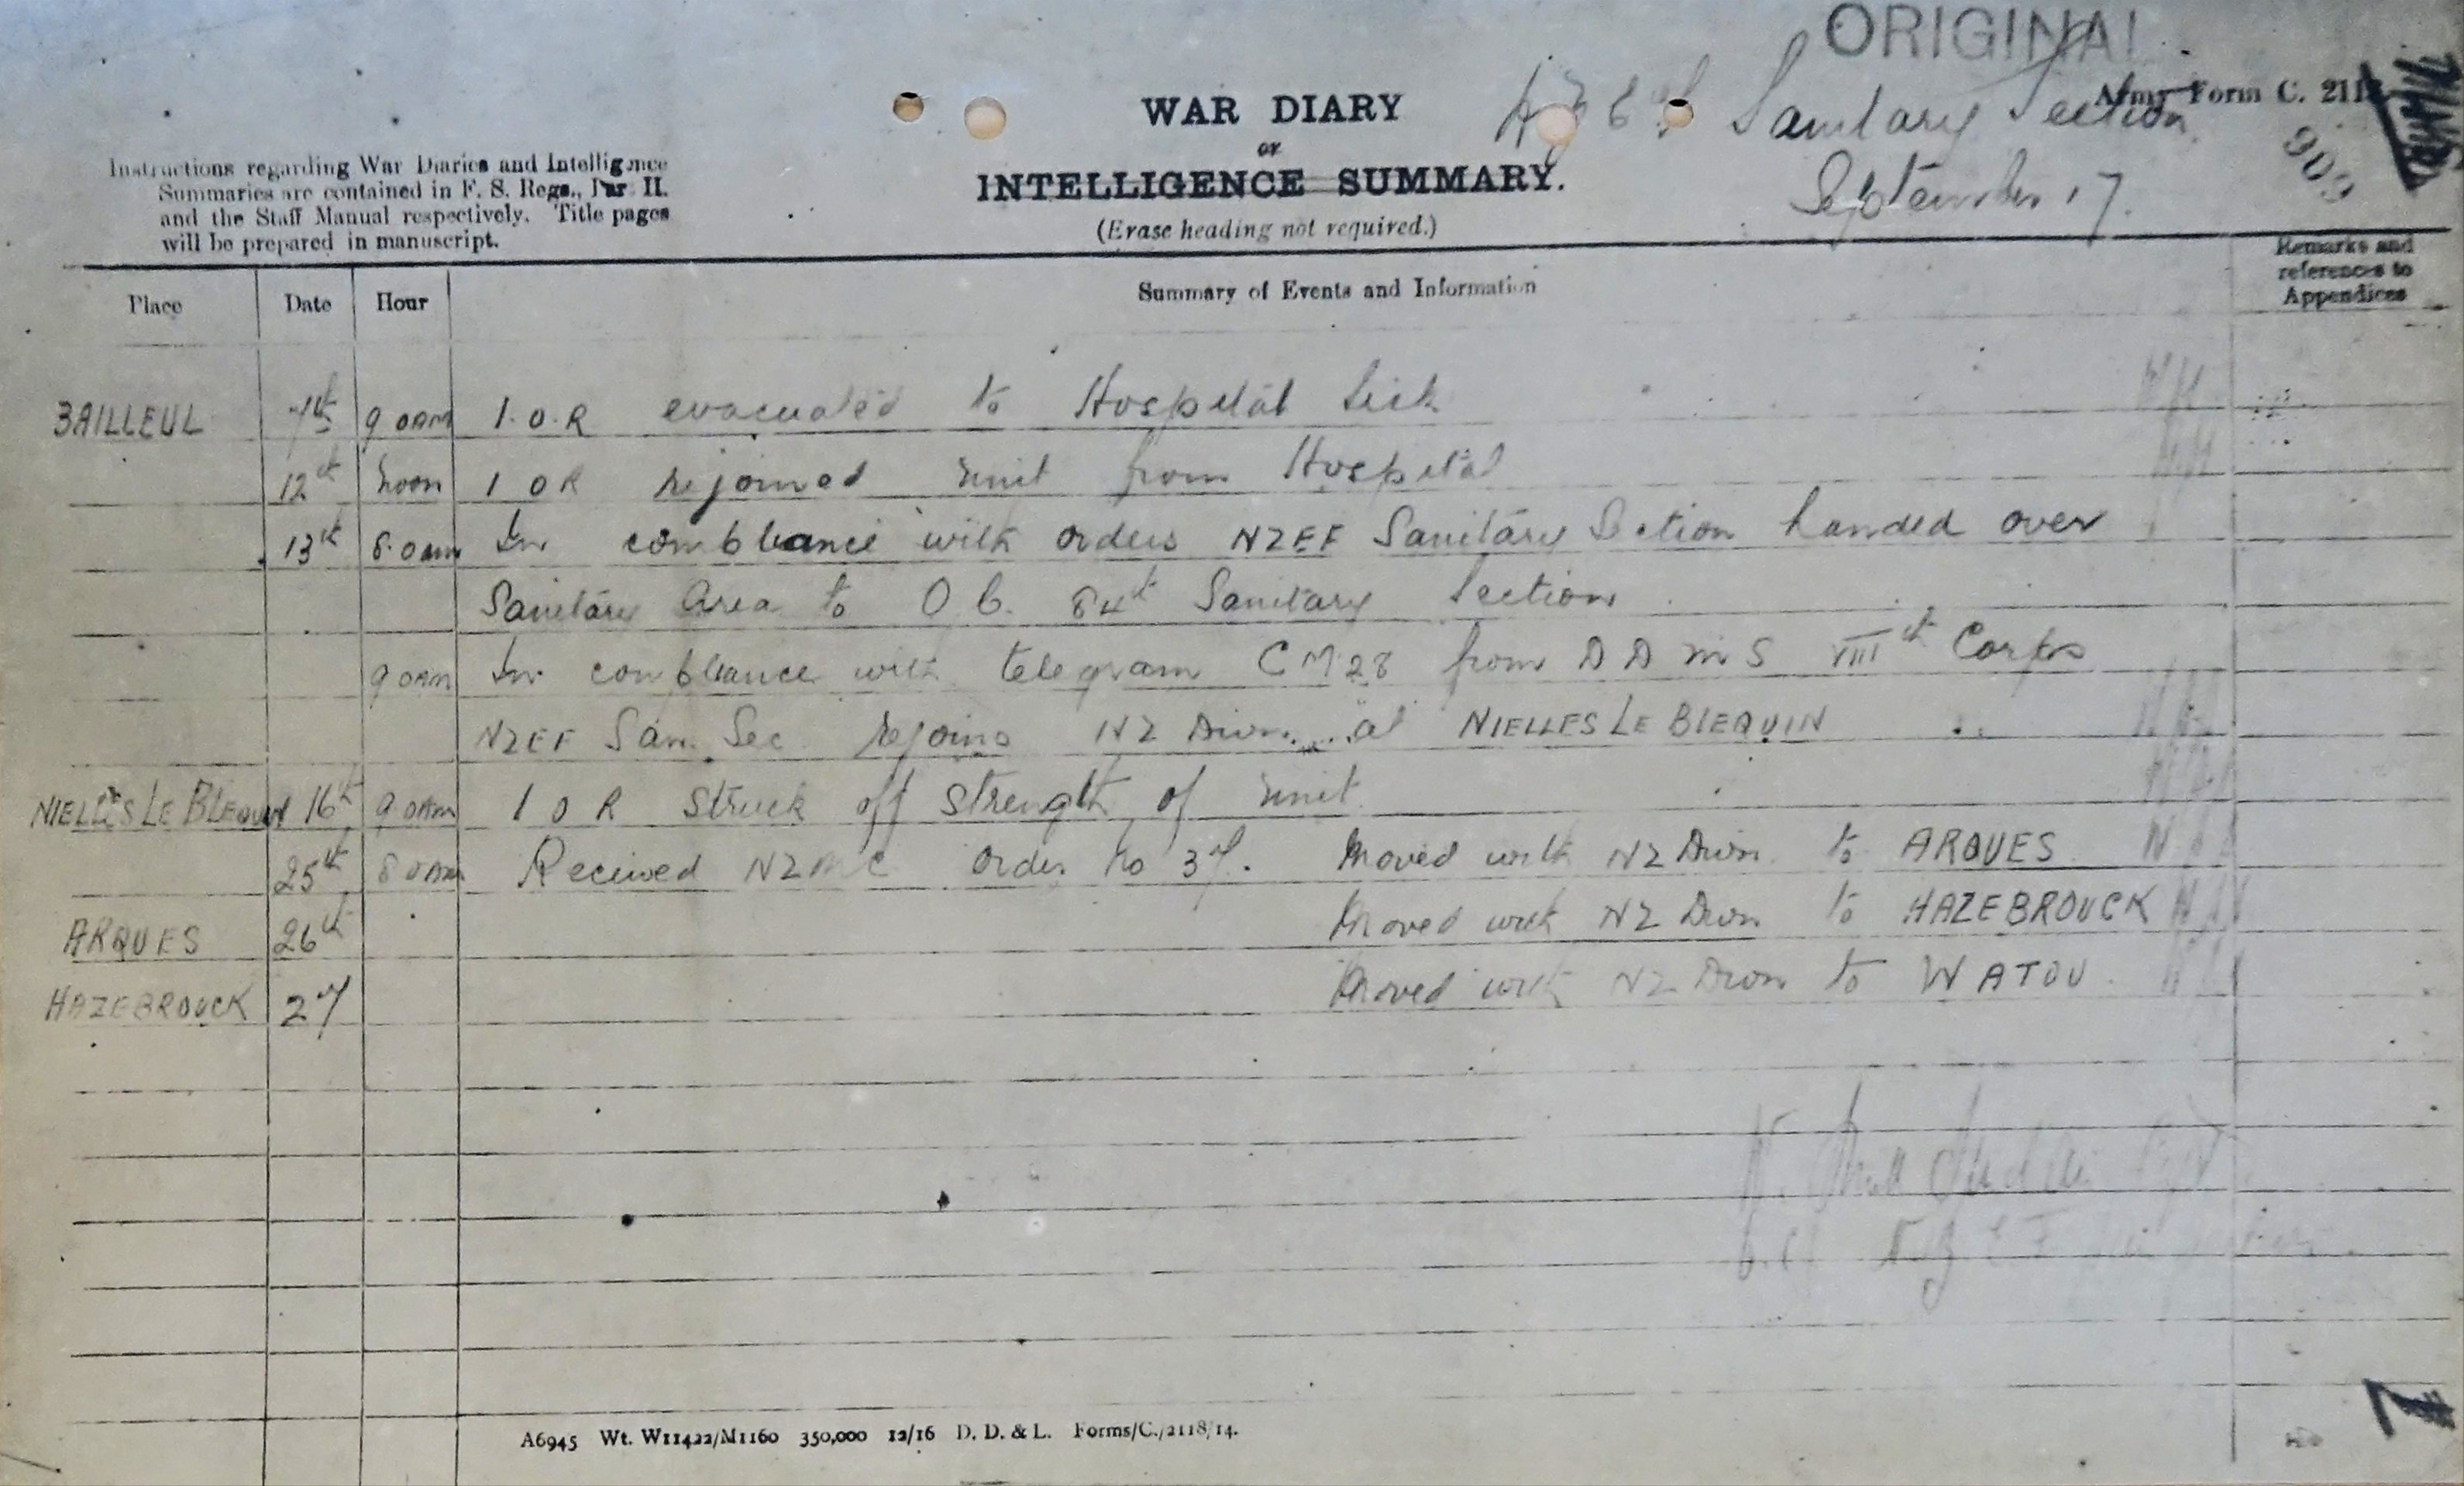 ORIGINAL
Army Form C. 2118
WAR DIARY
or
INTELLIGENCE SUMMARY.
(Erase heading not required.)
Sanitary Section
September 17.
909
Instructions regarding War Diaries and Intelligence
Summaries are contained in F. S. Regs., Part II.
and the Staff Manual respectively. Title pages
will be prepared in manuscript.
Place Date Hour Summary of Events and Information Remarks and references to Appendices
BAILLEUL 9 0AM 1.O.R evacuated to Hospital Sick
12th noon 1 O R rejoined unit from Hospital
13th 8.0am In compliance with orders NZEF Sanitary Section handed over
Sanitary Area to O C. 84th Sanitary Section
9 0AM In compliance with telegram CM28 from D D M S VIIIth Corps
NZEF San. Sec. rejoins NZ Divn. at NIELLES LE BLEQUIN
NIELLES LE BLEQUIN 16th 9 0AM 1 O R struck off strength of unit
25th 8 0AM Received NZMC Order No 37. Moved with NZ Divn. to ARQUES
ARQUES 26th Moved with NZ Divn to HAZEBROUCK
HAZEBROUCK 27 Moved with NZ Divn to WATOU.
A6945 Wt. W11422/M1160 350,000 12/16 D. D. & L. Forms/C./2118/14.
7